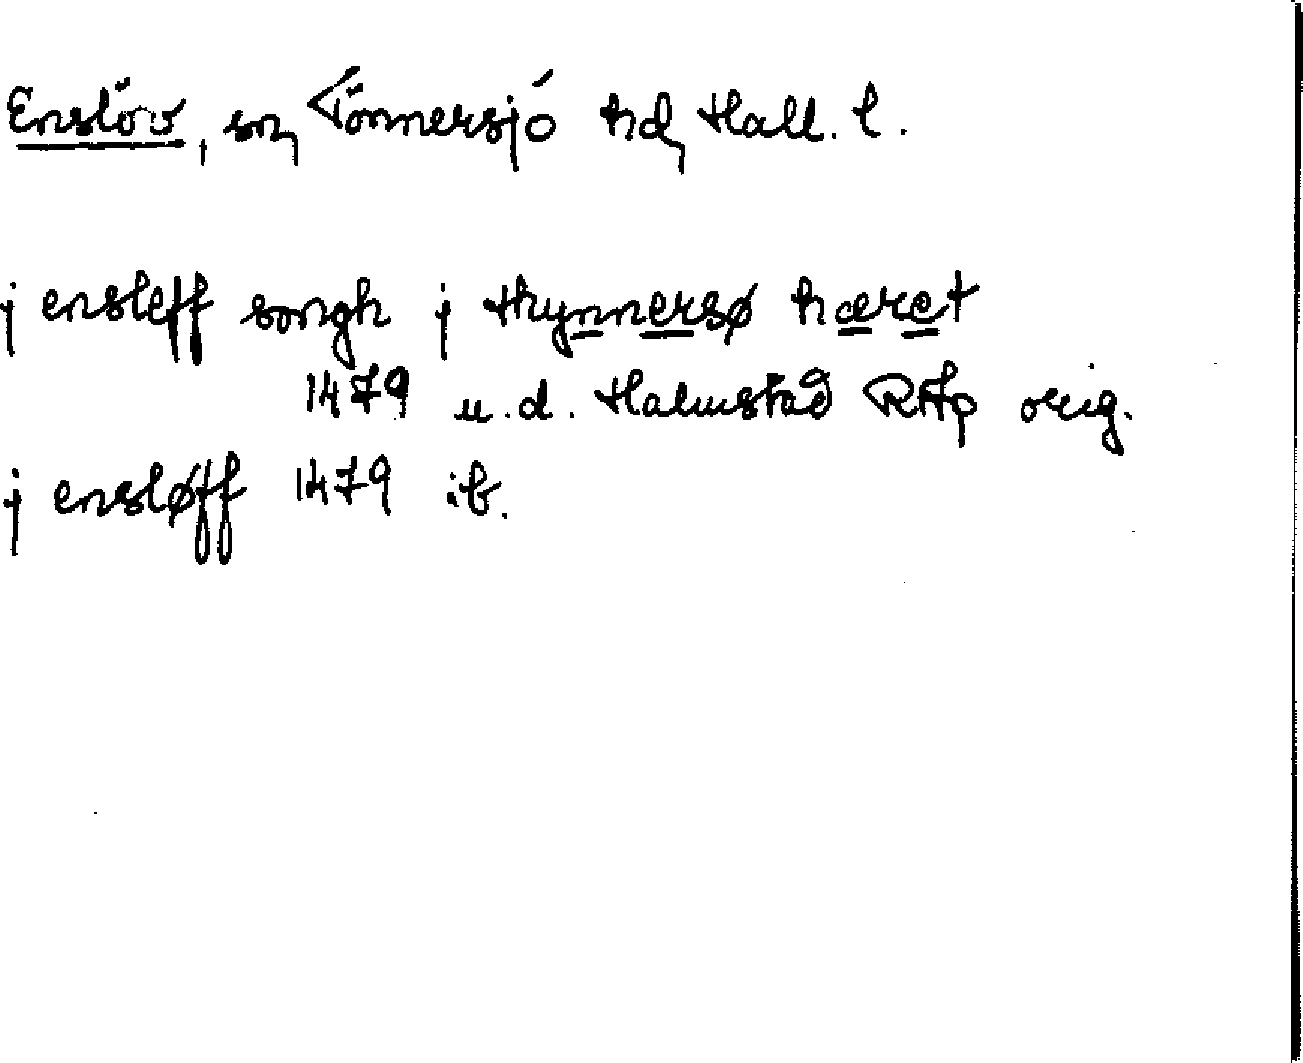 Enslöv, sn, Tönnersjö hd, Hall. l.
j ensleff songh j thynnersø hæret
1479 u.d. Halmstad RAp orig.
j ensløff 1479 ib.